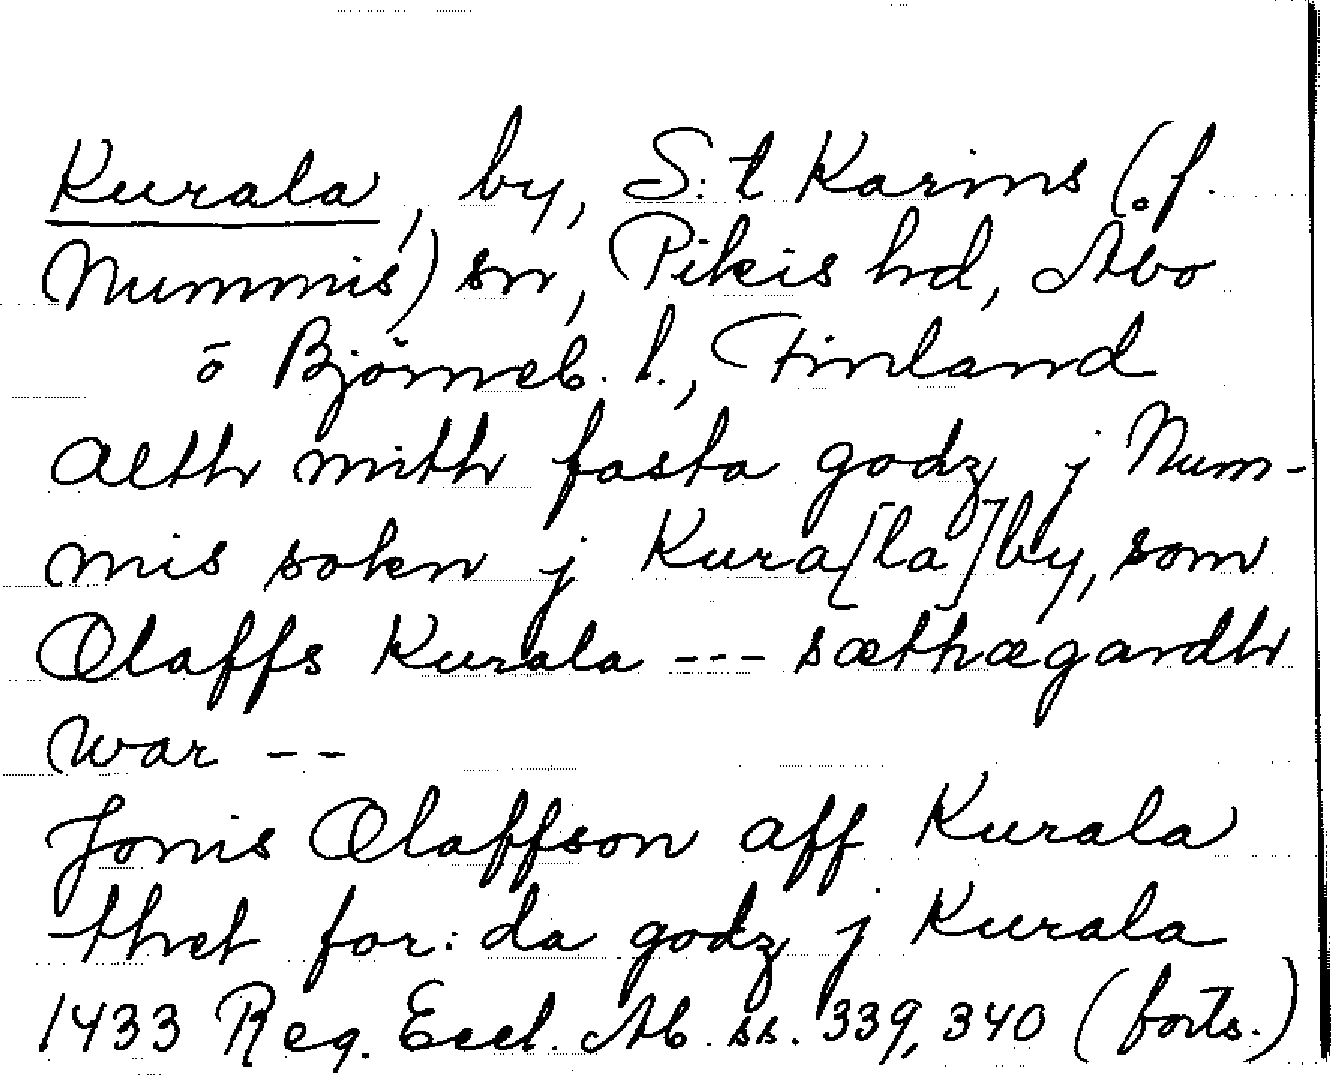 Kurala, by, S:t Karins (f.
Nummis) sn, Pikis hd, Åbo
o Björneb. l., Finland
alth mith fasta godz j Num-
mis sokn j Kura[la]by, som
Olaffs Kurala --- sæthægardh
war --
Jønis Olaffson aff Kurala
thet for:da godz j Kurala
1433 Reg. Eccl. Ab. ss. 339, 340 (forts.)